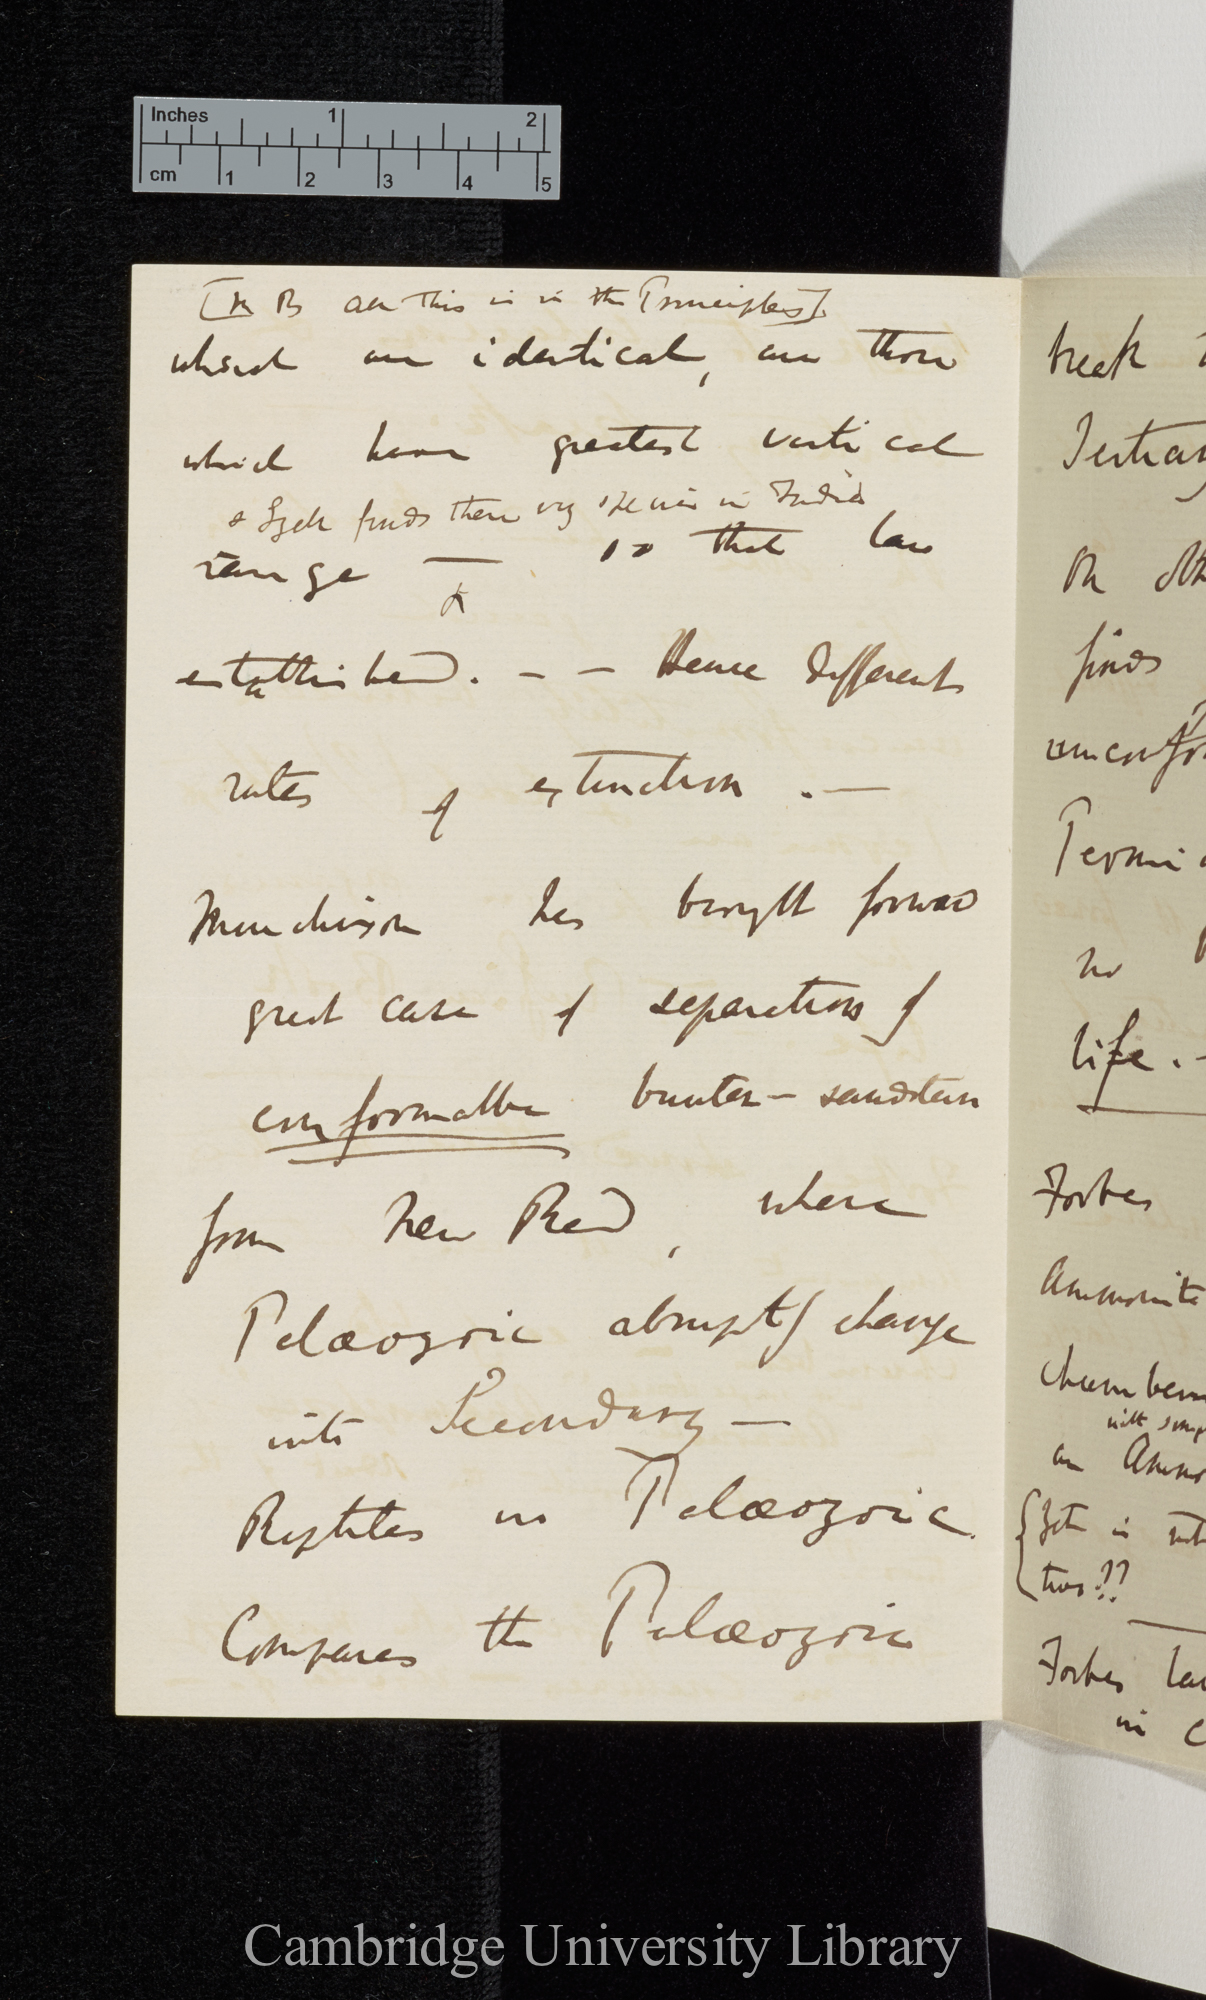 Inches 1 2
cm 1 2 3 4 5
[N B all this is in the Principles].
which are identical, are those
which have greatest vertical
& Lyell finds these very species in India
range — so that law
established. – – Hence different
rates of extinction . —
Murchison has brought forward
great case of separation of
conformable bunter – sandstein
from New Red, where
Palæozoic abruptly change
into Secondary —
Reptiles in Palæozoic.
Compares the Palæozoic
break
Tertiary
On oth
finds
unconfor
Permi
no
life. –
Forbes
Ammonite
Chamber
with simp
an Ammo
is int
two!??
Forbes
in c
Cambridge University Library